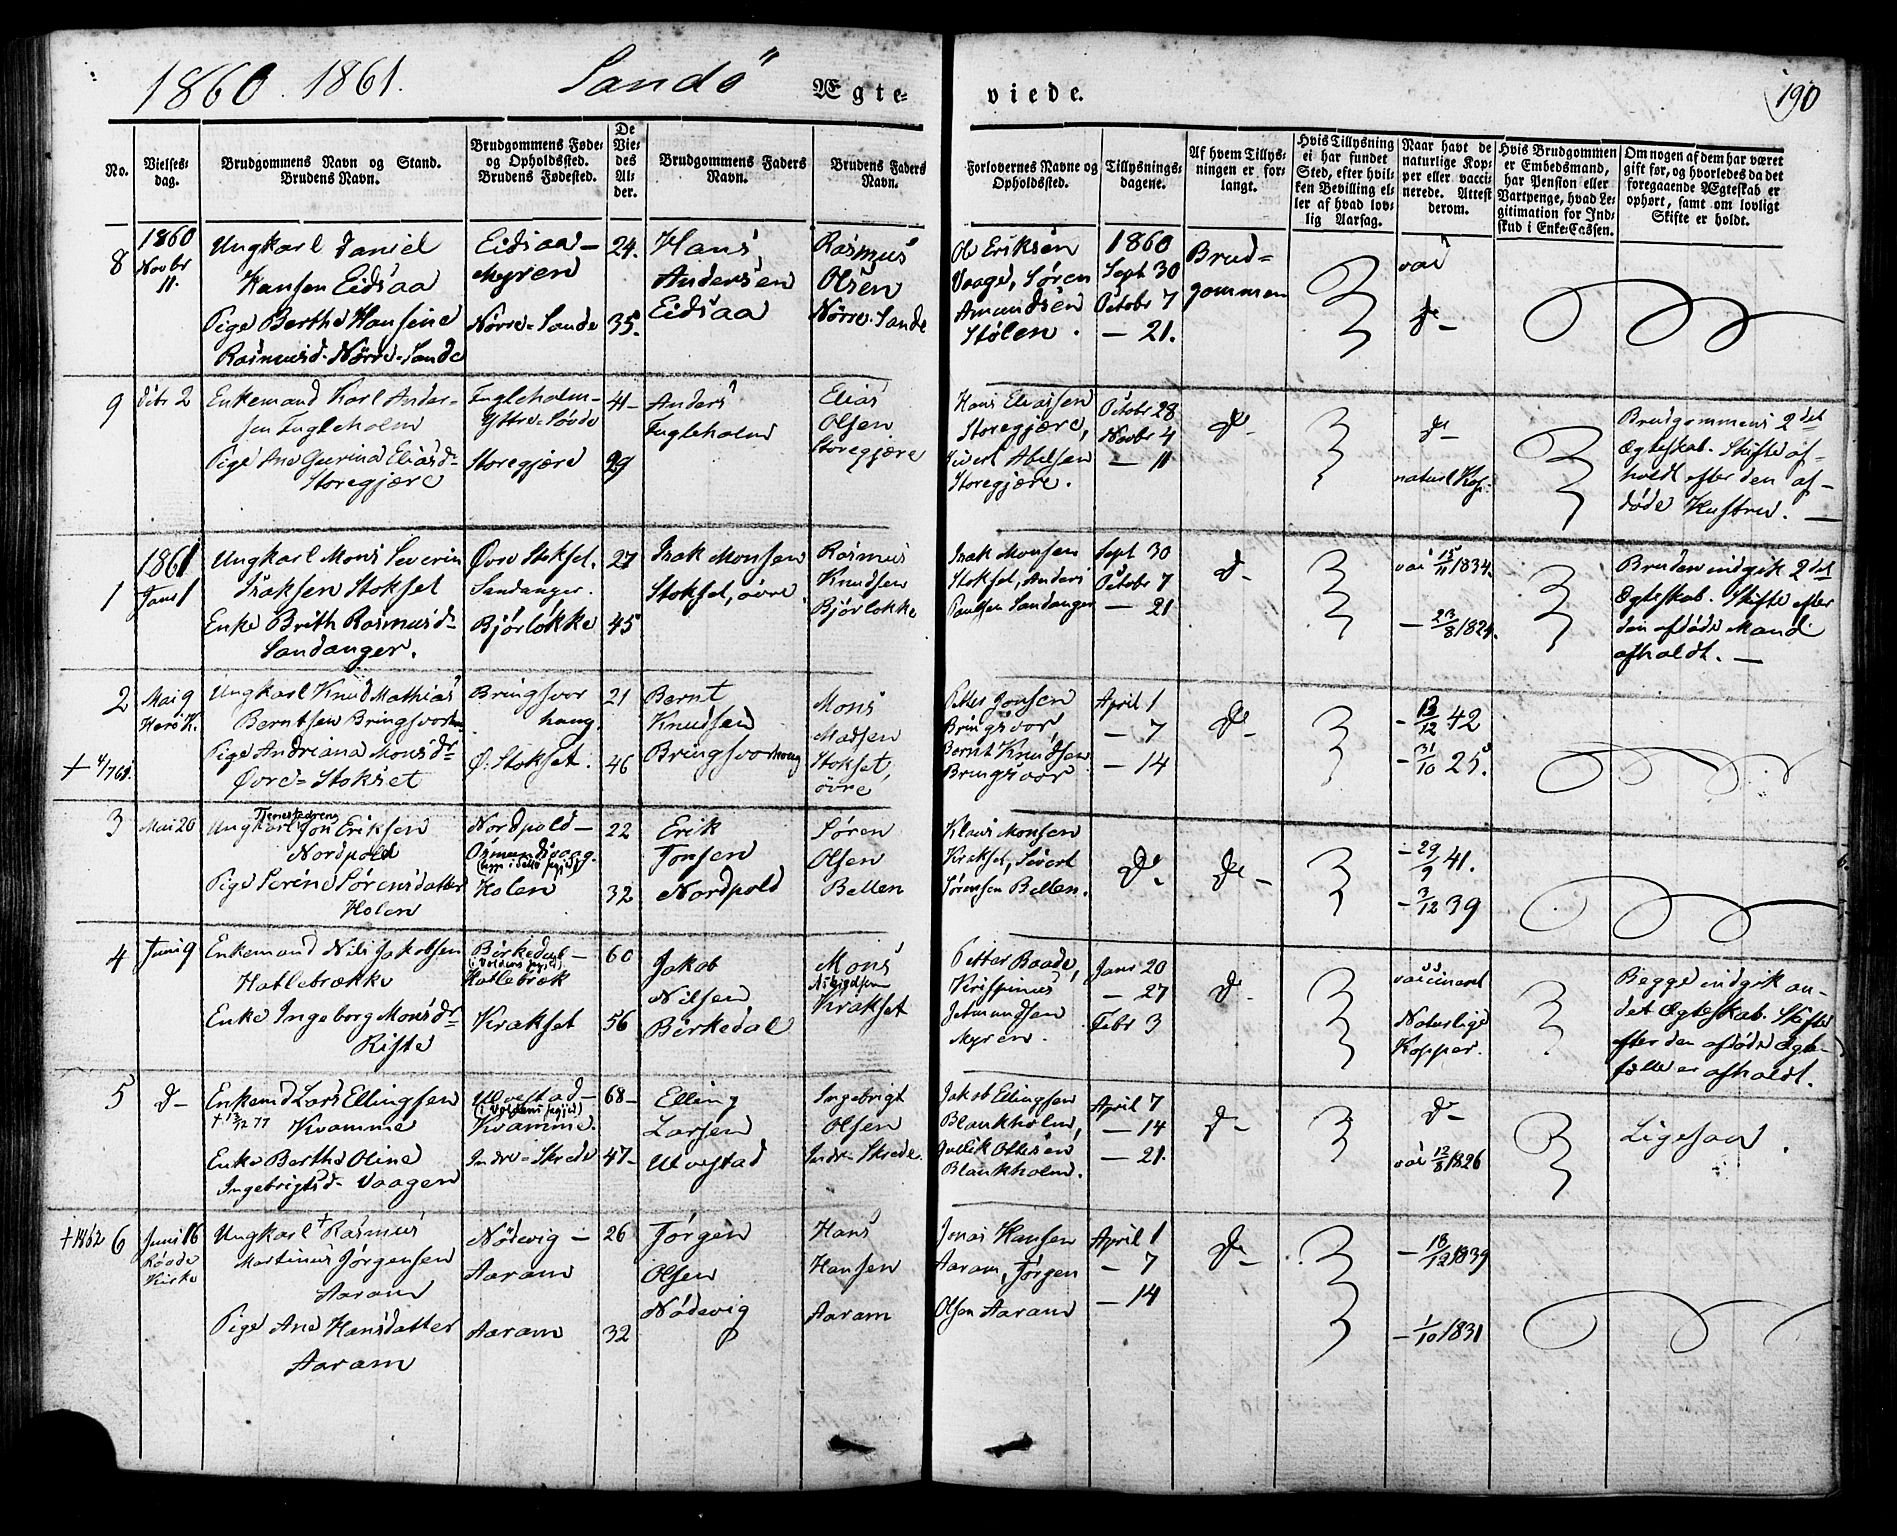 1860. 1861. Sandö Ægteviede. 190
No.
Vielsesdag.
Brudgommens Navn og Stand.
Brudens Navn.
Brudgommens Føde-
og Opholdssted.
Brudens Fødested.
De
Vie-
des
Al-
der.
Brudgommens Faders
Navn.
Brudens Faders
Navn.
Forlovernes Navne og
Opholdssted.
Tillysnings-
dagene.
Af hvem Tillys-
ningen er for-
langt.
Hvis Tillysning
ei har fundet
Sted, efter hvil-
ken Bevilling el-
ler af hvad lov-
lig Aarsag.
Naar havt de
naturlige Kop-
per eller vacci-
nerede. Attest
derom.
Hvis Brudgommen
er Embedsmand,
har Pension eller
Vartpenge, hvad Le-
gitimation for Ind-
skud i Enke-Cassen.
Om nogen af dem har været
gift før, og hvorledes da det
foregaaende Ægteskab er
ophørt, samt om lovligt
Skifte er holdt.
8
1860
Novbr
11.
Ungkarl Daniel
Hansen Eidsaa
Pige Berthe Hansine
Rasmusd. Nörre-Sande
Eidsaa-
Myren
Nörre-Sande
24.
35.
Hans
Andersen
Eidsaa
Rasmus
Olsen
Nörre-Sande
Ole Eriksen
Vaage, Sören
Amundsen
Stölen.
1860
Sept 30
Octobr 7
— 21.
Brud-
gommen
vac
do
9
Dcbr 2
Enkemand Karl Ander-
sen Fugleholm
Pige Ane Gurina Eliasdr
Storegjære
Fugleholm-
Yttre-Søvde
Storegjære
41
29
Anders
Fugleholm
Elias
Olsen
Storegjære
Hans Eliassen
Storegjære,
Sivert Abelsen
Storegjære.
Octobr 28
Novbr 4
— 11
do
do
naturl Kop.
Brudgommens 2det
Ægteskab. Skifte af-
holdt efter den af-
døde Hustru. —
1
1861
Janr 1
Ungkarl Mons Severin
Isaksen Stokset
Enke Brith Rasmusdr
Sandanger.
Øvre Stokset.
Sandanger.
Bjørlökke
27
45
Isak Monsen
Stokset, övre
Rasmus
Knudsen
Bjørlokke
Isak Monsen
Stokset, Anders
Paulsen Sandanger
Sept 30
Octobr 7
— 21
do
vac 15/11 1834.
— 23/8 1824.
Bruden indgik 2det
Ægteskab. Skifte efter
den afdøde Mand
afholdt. —
2
+ 4/7 61.
Mai 9
Herö K.
Ungkarl Knud Mathias
Berntsen Bringsvorhaug
Pige Andriana Monsdr
Øvre-Stokset
Bringsvor
haug.
Ø. Stokset.
21
46
Bernt
Knudsen
Bringsvorhaug
Mons
Madsen
Stokset,
øvre
Petter Jonsen
Bringsvor,
Bernt Knudsen
Bringsvor
April 1
— 7
— 14
do
— 13/12 42
— 31/10 25.
3
Mai 20
Tjenestedreng
Ungkarl Jon Eriksen
Nordpold
Pige Serine Sørensdatter
Holen
Nordpold-
Osmundsvaag.
Holen
22
32
Erik
Jonsen
Nordpold
Søren
Olsen
Bellen
Klaus Monsen
Krakset, Sivert
Sørensen Bellen.
do
do
— 29/9 41.
— 3/12 39
4
Juni 9
Enkemand Nils Jakobsen
Hatlebrække
Enke Ingeborg Monsdr
Riste
Birkedal-
(i Voldens Pgjeld)
Hatlebræk
Krakset
60
56
Jakob
Nilsen
Birkedal
Mons
Krakset
Petter Baade,
Krispinus
Jetmundsen
Myren.
Janr 20
— 27
Febr 3
do
vaccineret
Naturlige
Kopper.
Begge indgik an-
det Ægteskab. Skifte
efter den afdøde Ægte-
fælle er afholdt.
5
do
Enkemd Lars Ellingsen
+ 13/12 77 Kvamme
Enke Berthe Oline
Ingebrigtsd. Vaagen
Ulvestad-
(i Voldens Pgjeld)
Kvamme.
Indre-Skrede
68
47
Elling
Larsen
Ulvestad
Ingebrigt
Olsen
Indr-Skrede.
Jakob Ellingsen
Blankholm,
Gullik Ottesen
Blankholm.
April 7
— 14
— 21.
do
do
vac 12/8 1826
Ligesaa.
+1862 6
Juni 16
Røvde
Kirke
Ungkarl + Rasmus
Martinus Jörgensen
Aaram
Pige Ane Hansdatter
Aaram
Nödevig —
Aaram
Aaram
26
32
Jörgen
Olsen
Nödevig
Hans
Hansen
Aaram
Jonas Hansen
Aaram, Jörgen
Olsen Aaram
April 1
— 7
— 14
do
— 18/12 1839
— 1/10 1831